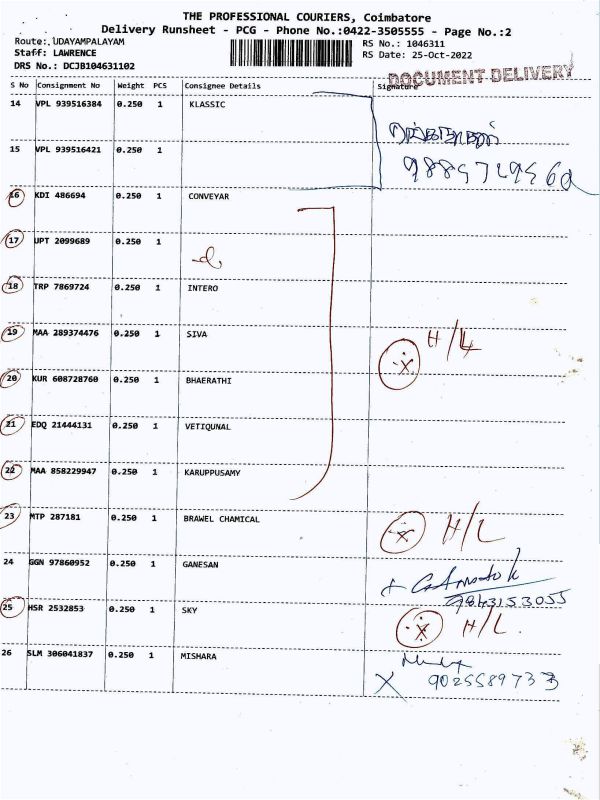 THE PROFESSIONAL COURIERS, Coimbatore
Delivery Runsheet - PCG - Phone No.:0422-3505555 - Page No.:2
Route:.UDAYAMPALAYAM
RS No.: 1046311
Staff: LAWRENCE
RS Date: 25-Oct-2022
DRS No.: DCJB104631102
DOCUMENT DELIVERY
S No Consignment No Weight PCS Consignee Details Signature
14 VPL 939516384 0.250 1 KLASSIC
15 VPL 939516421 0.250 1
16 KDI 486694 0.250 1 CONVEYAR
17 UPT 2099689 0.250 1
18 TRP 7869724 0.250 1 INTERO
19 MAA 289374476 0.250 1 SIVA H/L
20 KUR 608728760 0.250 1 BHAERATHI
21 EDQ 21444131 0.250 1 VETIQUNAL
22 MAA 858229947 0.250 1 KARUPPUSAMY
23 MTP 287181 0.250 1 BRAWEL CHAMICAL H/L
24 GGN 97860952 0.250 1 GANESAN
9843153055
25 HSR 2532853 0.250 1 SKY H/L.
26 SLM 306041837 0.250 1 MISHARA
X 9025589733